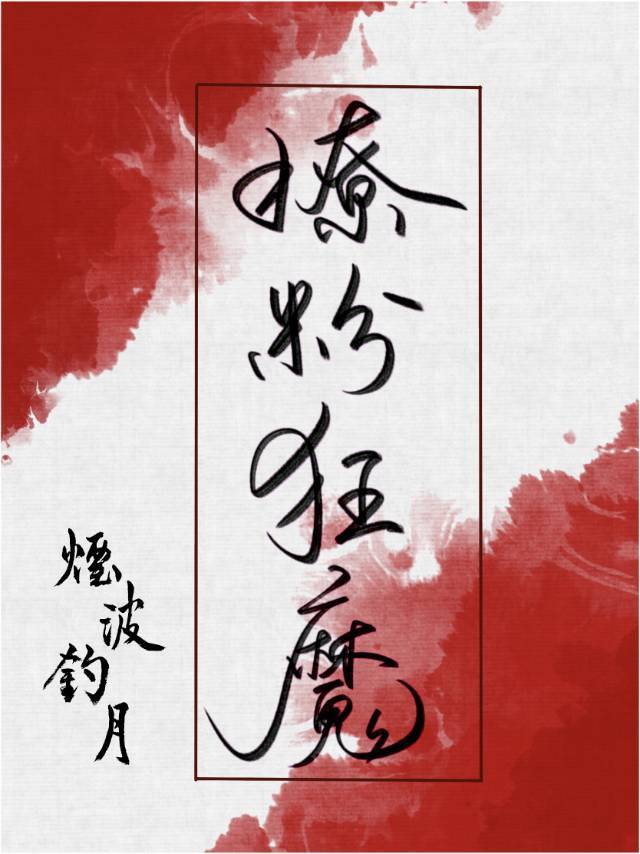 撩粉狂魔
煙波釣月